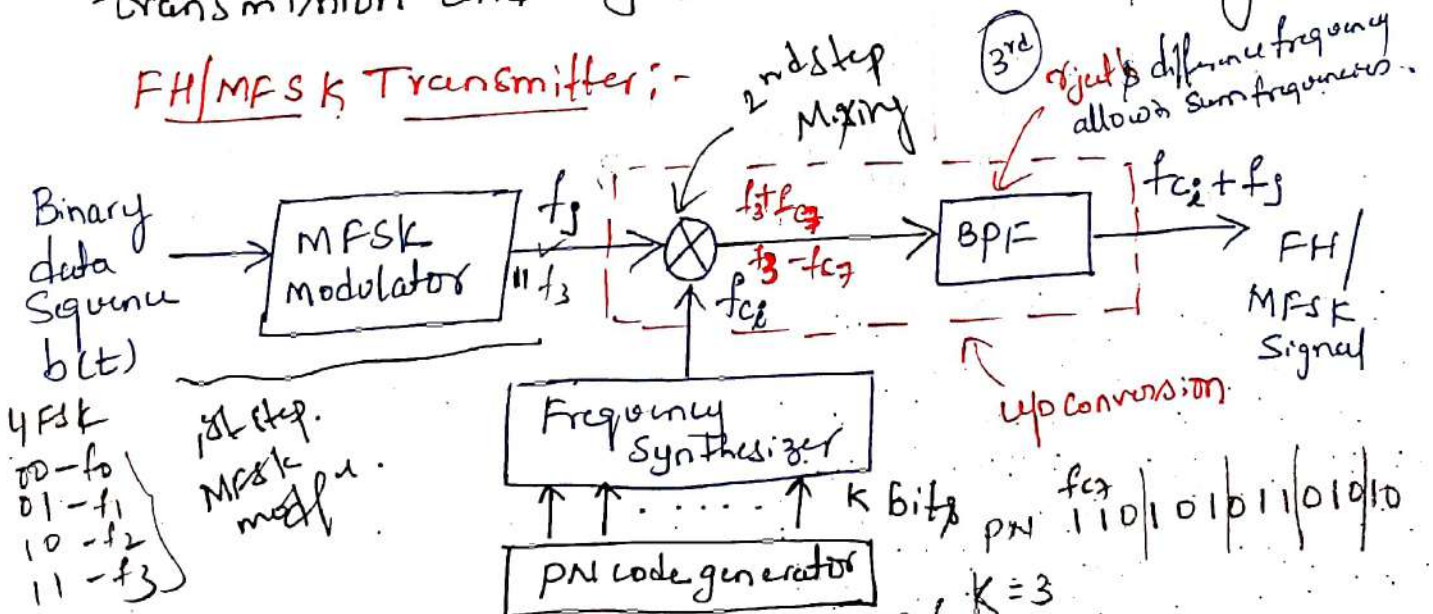 transmission
FH/MFSK Transmitter:-
2nd step
Mixing
3rd
rejects difference frequency
allows sum frequencies.
Binary
data
Sequence
b(t)
MFSK
modulator
fj
11 f3
f3+fc7
f3-fc7
fci
BPF
fci+fj
FH/
MFSK
Signal
up conversion.
4FSK
00-f0
01-f1
10-f2
11-f3
1st step.
MFSK
modl.
Frequency
Synthesizer.
K bits
PN code generator
fc7
PN 110|101|011|010|10
K=3